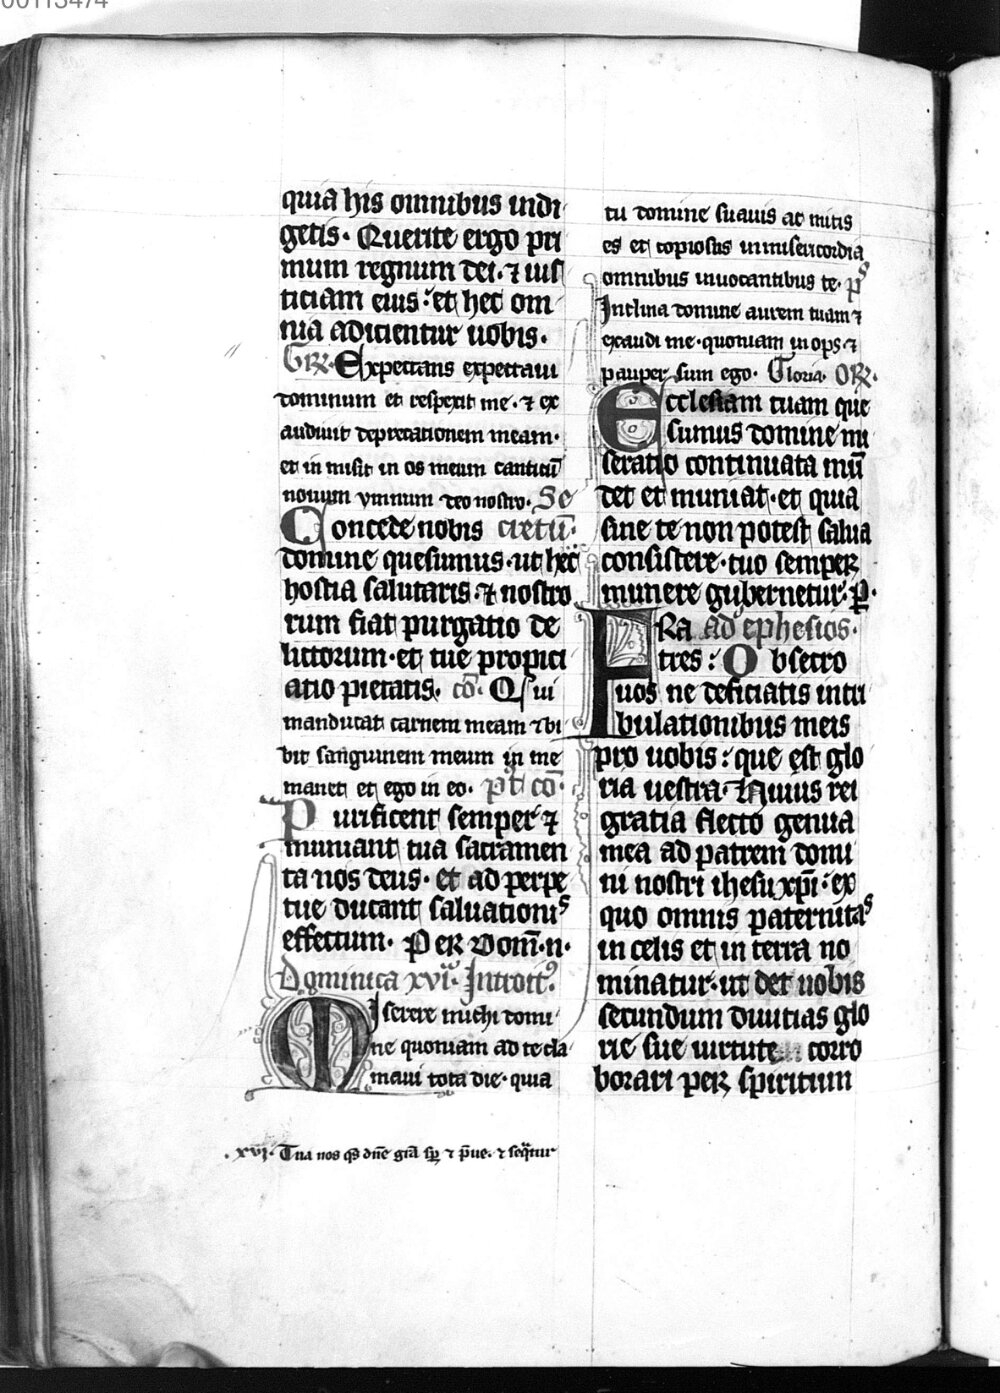 00113474
quia his omnibus indi
getis. Querite ergo pri
mum regnum dei. ⁊ ius
ticiam eius: et hec om
nia adicientur uobis.
Expectans expectaui
dominum et respexit me. ⁊ ex
audiuit deprecationem meam.
et in misit in os meum canticū
nouum ymnum deo nostro. Se
Concede nobis cretū.
domine quesumus. ut hec
hostia salutaris. ⁊ nostro
rum fiat purgatio de
lictorum. et tue propici
atio pietatis. cō. Qui
manducat carnem meam ⁊ bi
bit sanguinem meum in me
manet et ego in eo. pꝰt cō.
Purificent semper ⁊
muniant tua sacramen
ta nos deus. et ad perpe
tue ducant saluationis
effectum. Per Dom̄. n.
Dominica xvi. Introitꝰ.
Miserere michi domi
ne quoniam ad te cla
maui tota die. quia
.xvi. Tua nos qs dn̄e gr̄a sp̱ ⁊ p̄ue. ⁊ seq̄tur
tu domine suauis ac mitis
es et copiosus in misericordia
omnibus inuocantibus te. ps
Inclina domine aurem tuam ⁊
exaudi me. quoniam inops ⁊
pauper sum ego. Gloria. OR.
Ecclesiam tuam que
sumus domine mi
seratio continuata mū
det et muniat. et quia
sine te non potest salua
consistere. tuo semper
munere gubernetur. ꝑ.
FRA ad ephesios.
tres: Obsecro
uos ne deficiatis in tri
bulationibus meis
pro uobis: que est glo
ria uestra. Huius rei
gratia flecto genua
mea ad patrem domi
ni nostri ihesu xp̄i. ex
quo omnis paternitas
in celis et in terra no
minatur. ut det uobis
secundum diuitias glo
rie sue uirtute corro
borari per spiritum